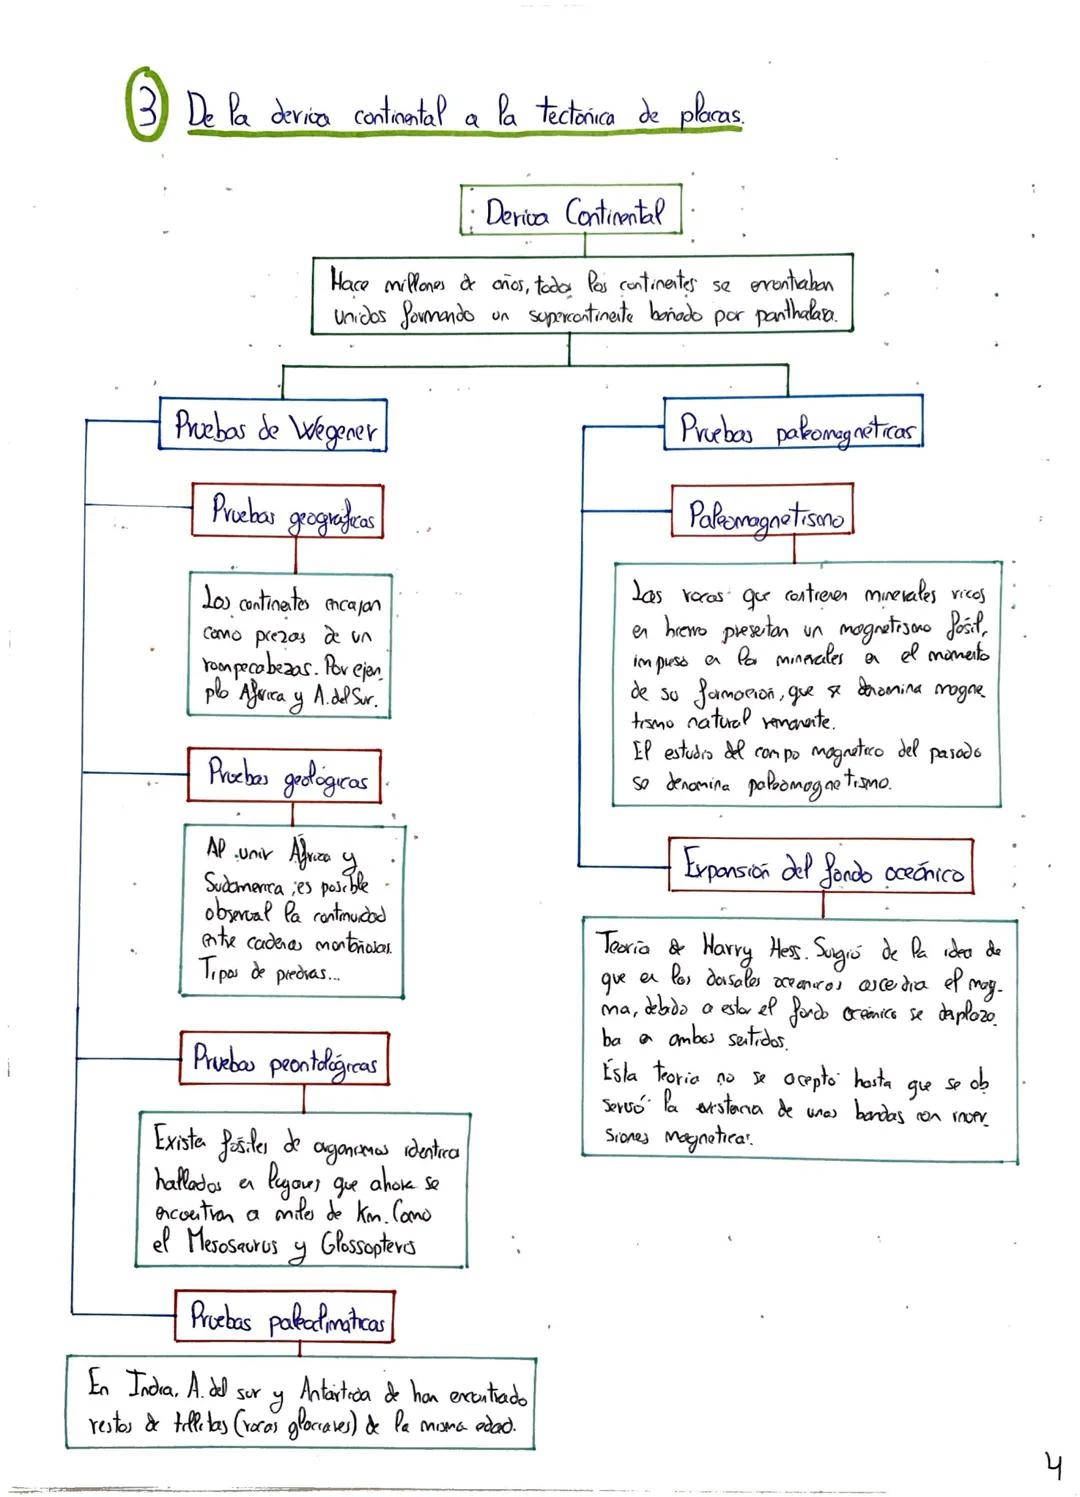 3 De la deriva continental a la tectónica de placas.
Deriva Continental
Hace millones de años, todos los continentes se encontraban
unidos formando un supercontinente bañado por panthalasa.
Pruebas de Wegener
Pruebas geográficas
Los continentes encajan
como piezas de un
rompecabezas. Por ejem
plo África y A. del Sur.
Pruebas geológicas
Al unir África y
Sudamerica, es posible
observal la continuidad
entre cadenas montañosas.
Tipos de piedras...
Pruebas peontológicas
Existen fósiles de organismos identicos
hallados en lugares que ahora se
encuentran a miles de Km. Como
el Mesosaurus y Glossopteris
Pruebas paleoclimáticas
En India, A. del sur y Antártida de han encontrado
restos de tillitas (rocas glaciares) de la misma edad.
Pruebas paleomagnéticas
Paleomagnetismo
Las rocas que contienen minerales ricos
en hierro presentan un magnetismo fósil,
impuso en los minerales en el momento
de su formación, que se denomina magne
tismo natural remanente.
El estudio del campo magnético del pasado
se denomina paleomagnetismo.
Expansión del fondo oceánico
Teoría de Harry Hess. Surgió de la idea de
que en las dorsales oceanicas ascendia el mag-
ma, debido a esto el fondo oceánico se desplaza
ba en ambos sentidos.
Esta teoría no se aceptó hasta que se ob
servó la existencia de unas bandas con inver
siones magneticas.
4